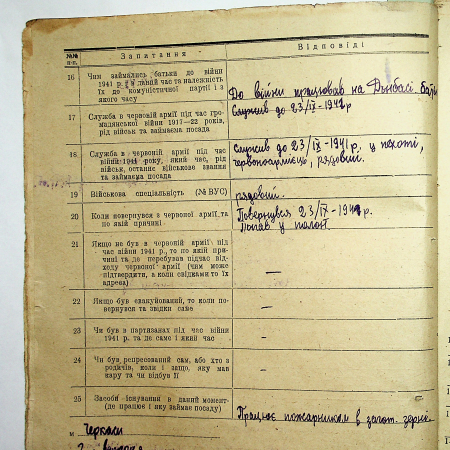 №№ п-п. Запитання Відповіді
16 Чим займались батьки до війни
1941 р і в даний час та належність
їх до комуністичної партії і з
якого часу
До війни працював на Донбасі
17 Служба в червоній армії під час гро-
мадянської війни 1917—22 років,
рід військ та займаєма посада
Служив до 23/IX-1941 р
18 Служба в червоній армії під час
війни 1941 року, який час, рід
військ, останнє військове звання
та займаєма посада
Служив до 23/IX-1941 р. у пехоті,
червоноармієць, рядовий.
19 Військова спеціальність (№ ВУС)
рядовий.
20 Коли повернувся з червоної армії та
по якій причині
Повернувся 23/IX-1941 р.
Попав у полон.
21 Якщо не був в червоній армії під
час війни 1941 р., то по якій при-
чині та де перебував підчас від-
ходу червоної армії (чим може
підтвердити, а коли свідками то їх
адреса)
—
22 Якщо був евакуйований, то коли по-
вернувся та звідки саме
—
23 Чи був в партизанах під час війни
1941 р. та де саме і який час
—
24 Чи був репресований сам, або хто з
родичів, коли і защо, яку мав
кару та чи відбув її
—
25 Засоби існування в даний момент
(де працює і яку займає посаду)
Працює пожарником в загот. зерні.
м Черкаси